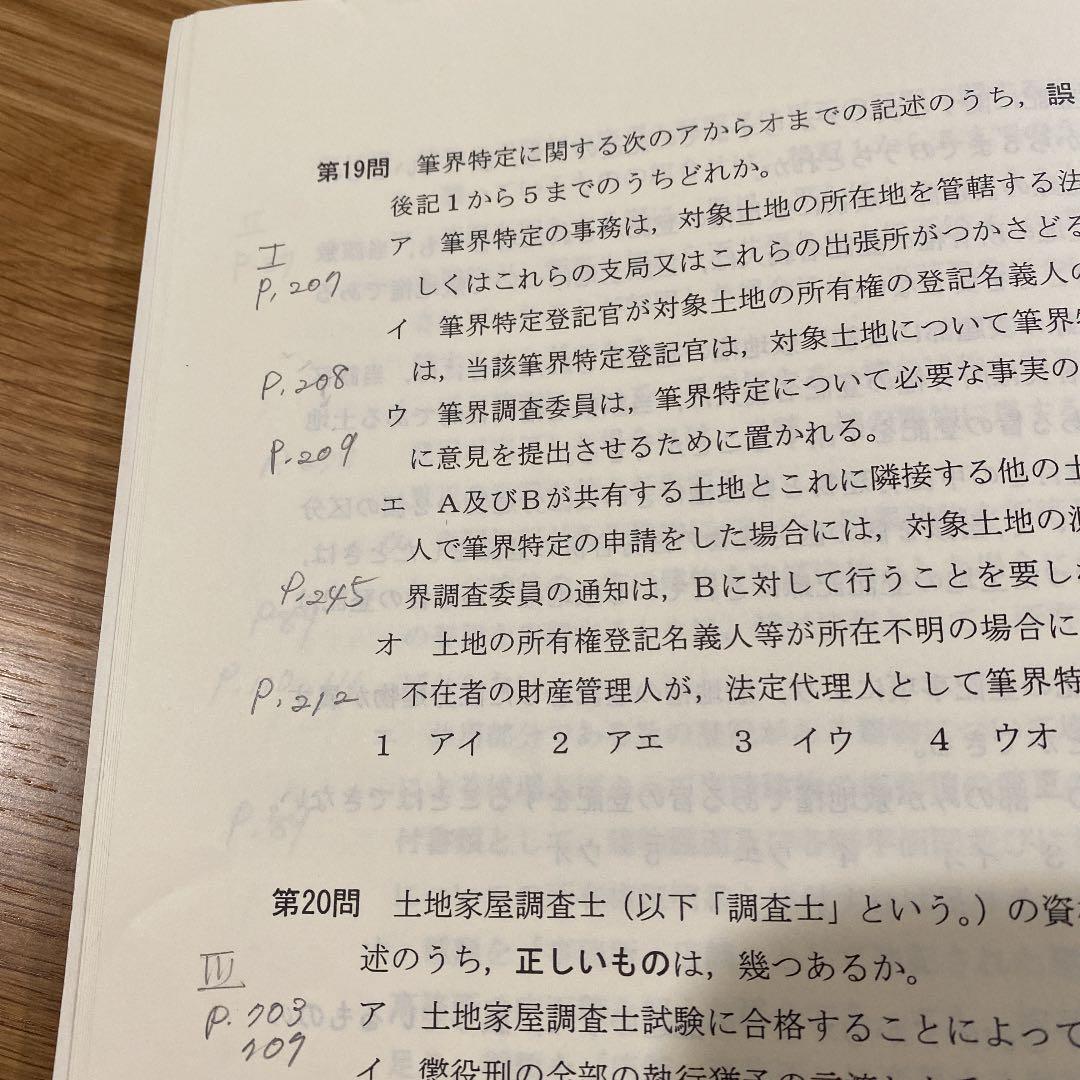 第19問 筆界特定に関する次のアからオまでの記述のうち，誤
後記１から５までのうちどれか。
ア 筆界特定の事務は，対象土地の所在地を管轄する法
I
P.207
しくはこれらの支局又はこれらの出張所がつかさどる
イ 筆界特定登記官が対象土地の所有権の登記名義人の
P.208
は，当該筆界特定登記官は，対象土地について筆界特
ウ 筆界調査委員は，筆界特定について必要な事実の
P.209
に意見を提出させるために置かれる。
エ Ａ及びＢが共有する土地とこれに隣接する他の土
人で筆界特定の申請をした場合には，対象土地の
P.245
界調査委員の通知は，Ｂに対して行うことを要しな
オ 土地の所有権登記名義人等が所在不明の場合に
P.212
不在者の財産管理人が，法定代理人として筆界特
１ アイ ２ アエ ３ イウ ４ ウオ
第20問 土地家屋調査士（以下「調査士」という。）の資
述のうち，正しいものは，幾つあるか。
III
P.203
209
ア 土地家屋調査士試験に合格することによって
イ 懲役刑の全部の執行猶予の言渡しを